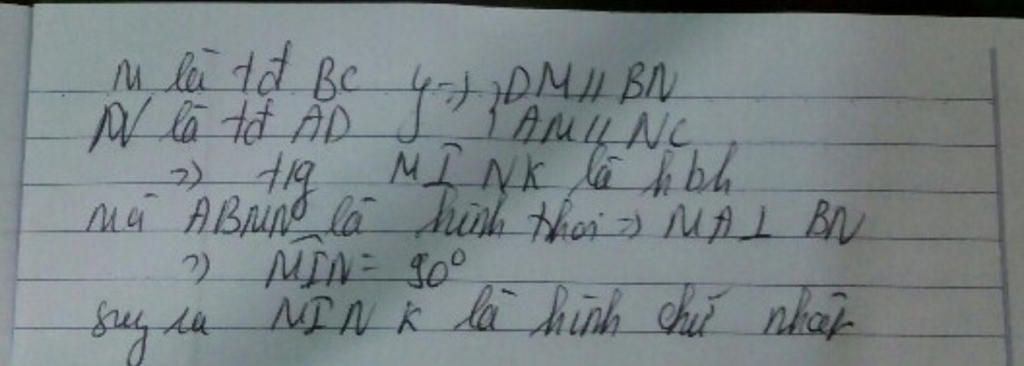 M là tđ BC } => { DM // BN
N là tđ AD } { AM // NC
=> tig MINK là hbh
mà ABMN là hình thoi => MA ⊥ BN
=> MIN = 90°
suy ra MINK là hình chữ nhật